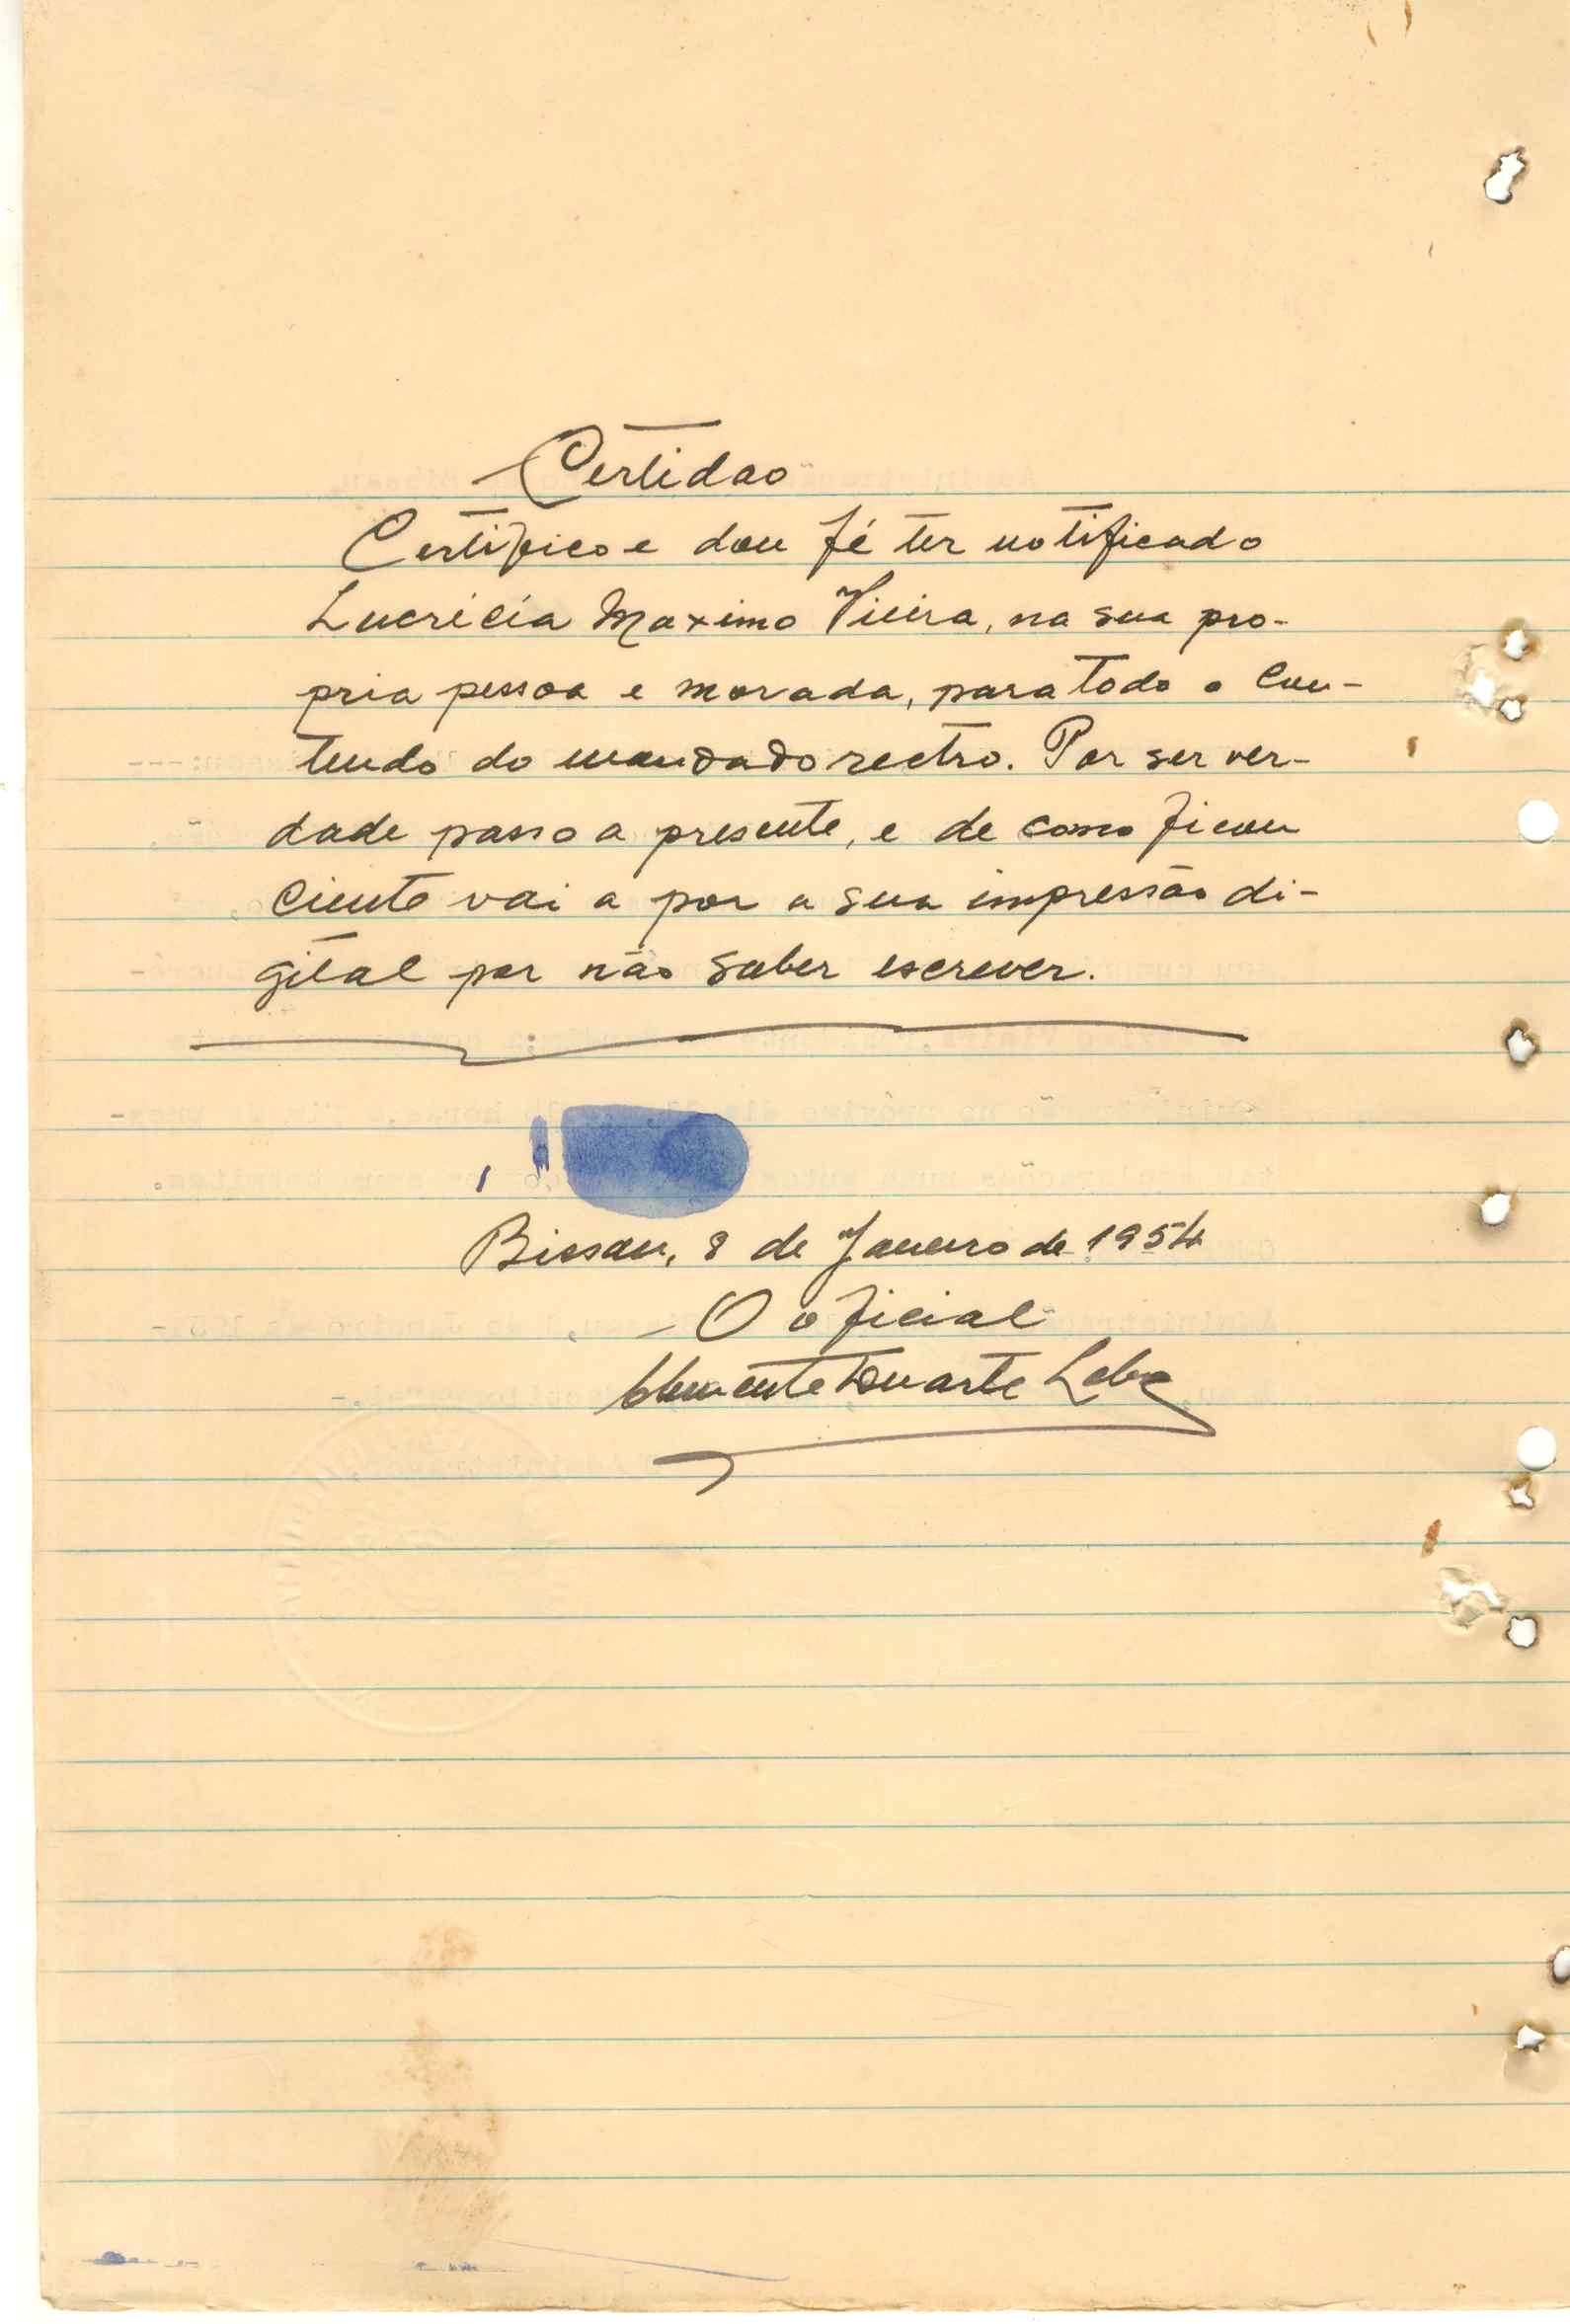 Certidao
Certifico e dou fé ter notificado
Lucrécia Maximo Vieira, na sua pro-
pria pessoa e morada, para todo o con-
teudo do mandado rectro. Por ser ver-
dade passo a presente, e de como ficou
ciente vai a por a sua impressão di-
gital por não saber escrever.
Bissau, 8 de Janeiro de 1954
O oficial
Clemente Duarte